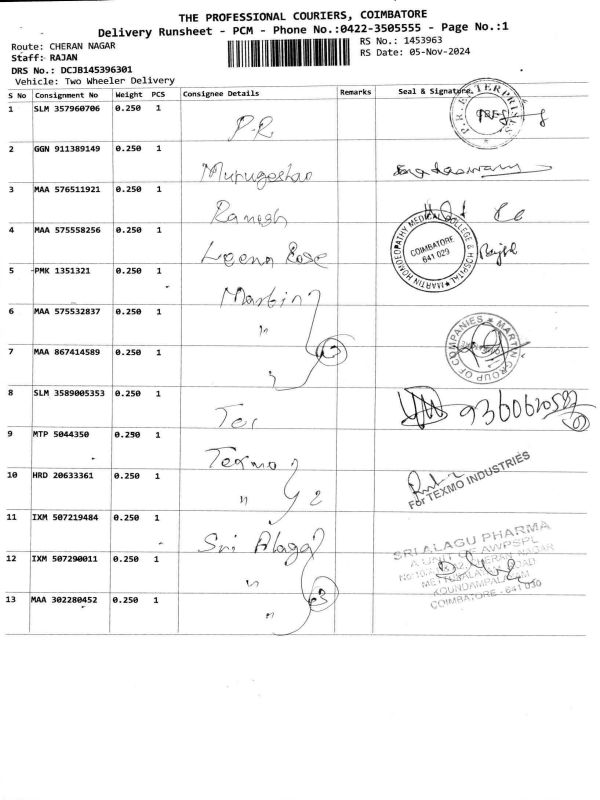 THE PROFESSIONAL COURIERS, COIMBATORE
Delivery Runsheet - PCM - Phone No.:0422-3505555 - Page No.:1
Route: CHERAN NAGAR
RS No.: 1453963
Staff: RAJAN
RS Date: 05-Nov-2024
DRS No.: DCJB145396301
Vehicle: Two Wheeler Delivery
S No Consignment No Weight PCS Consignee Details Remarks Seal & Signature
1 SLM 357960706 0.250 1 P.R P.R. ENTERPRISES
2 GGN 911389149 0.250 1 Murugeshan
3 MAA 576511921 0.250 1 Ramesh
4 MAA 575558256 0.250 1 Leena Rose
MARTIN HOMOEOPATHY MEDICAL COLLEGE & HOSPITAL
COIMBATORE
641 029
5 PMK 1351321 0.250 1 Martin
6 MAA 575532837 0.250 1 "
MARTIN GROUP OF COMPANIES
7 MAA 867414589 0.250 1 "
8 SLM 3589005353 0.250 1
9 MTP 5044350 0.290 1 Texmo
10 HRD 20633361 0.250 1 " 2
For TEXMO INDUSTRIES
11 IXM 507219484 0.250 1 Sri Alagu
SRI ALAGU PHARMA
A UNIT OF AWPSPL
12 IXM 507290011 0.250 1 "
CHERAN NAGAR
METTUPALAYAM ROAD
KOUNDAMPALAYAM
COIMBATORE - 641 030
13 MAA 302280452 0.250 1 " 3